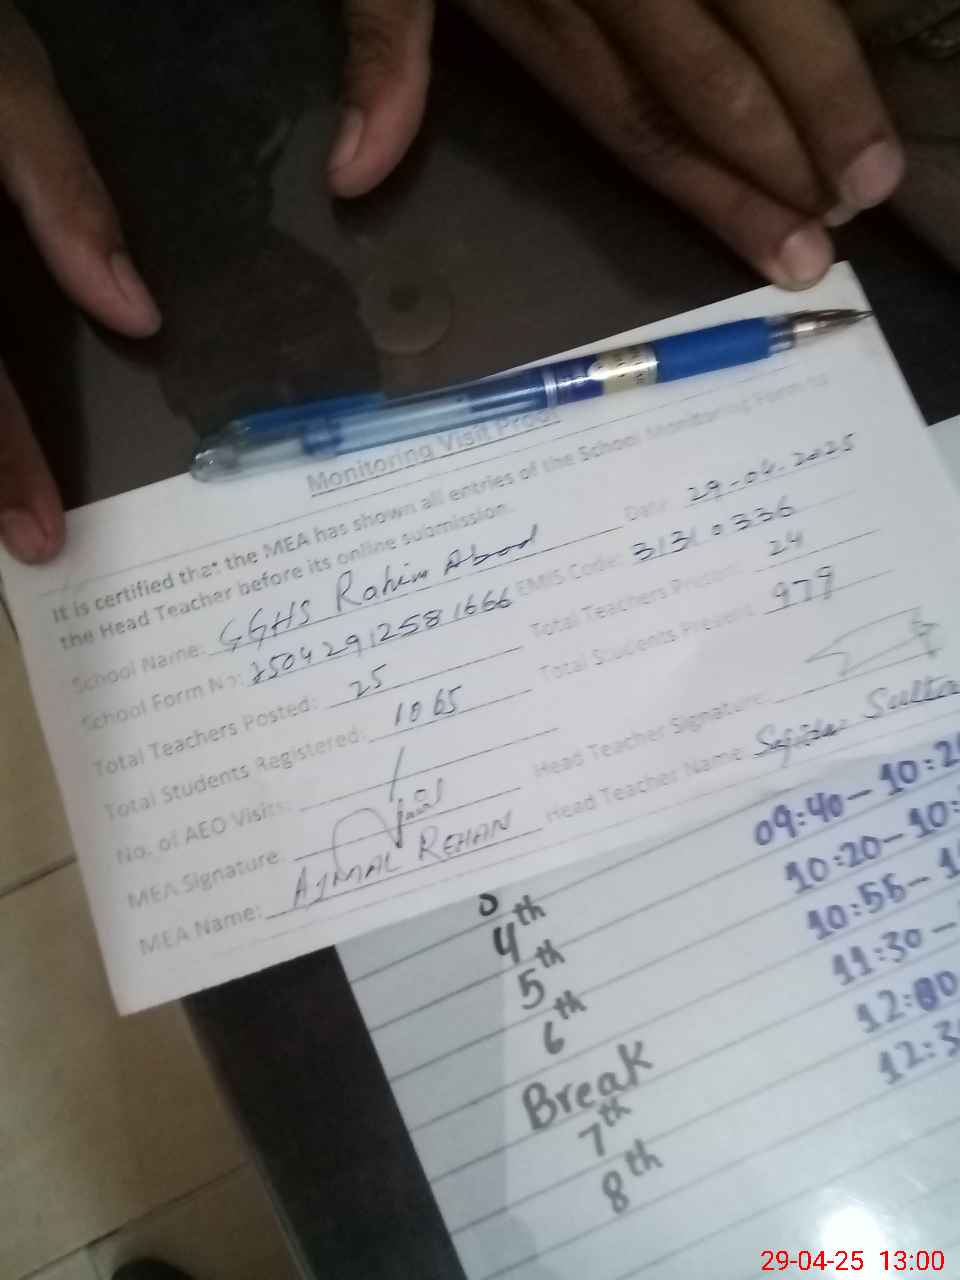 Monitoring Visit Proof
It is certified that the MEA has shown all entries of the School Monitoring Form to
the Head Teacher before its online submission.
School Name: GGHS Rahim Abad Date: 29-04-2025
School Form No: 25042912581666 EMIS Code: 31310336
Total Teachers Posted: 25 Total Teachers Present: 24
Total Students Registered: 1065 Total Students Present: 979
No. of AEO Visits: 1
MEA Signature: Head Teacher Signature:
MEA Name: AJMAL REHAN Head Teacher Name: Sajida Sulta
09:40 - 10:2
4th 10:20 - 10:
5th 10:55 - 1
6th 11:30 -
Break 12:00
7th 12:3
8th
29-04-25 13:00